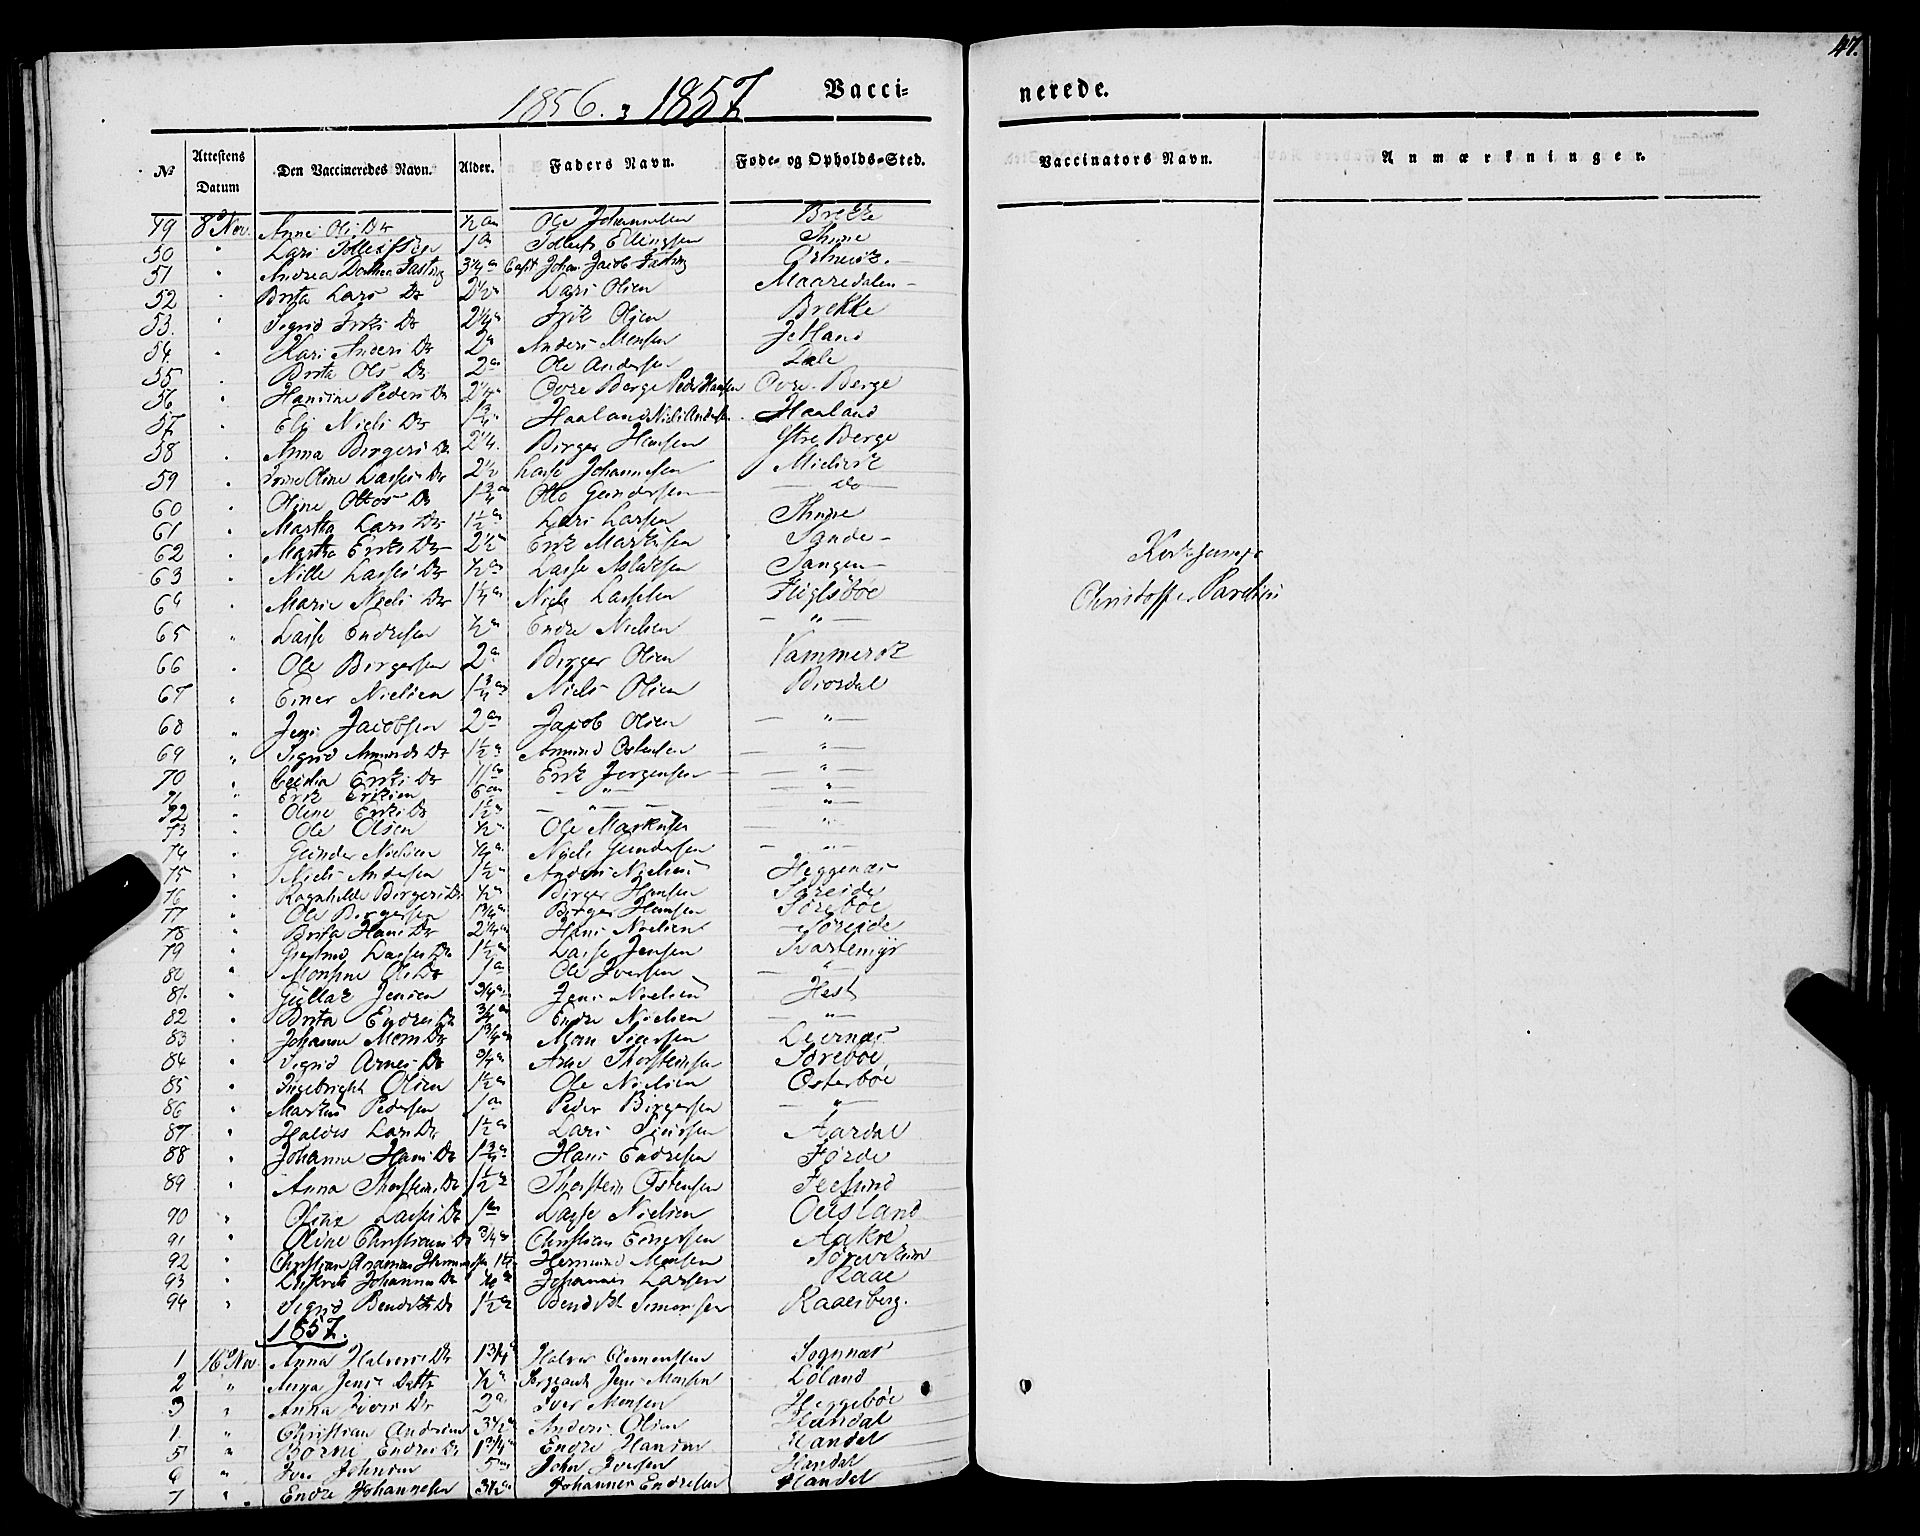 47.
1856. & 1857 Vacci- nerede.
No Attestens Datum Den Vaccineredes Navn. Alder. Faders Navn. Føde- og Opholds-Sted. Vaccinators Navn. Anmærkninger.
49 8de Nov. Anne Ols Dr ½ a Ole Johannessen Brekke
50 " Lars Tollefsen 1 a Tollef Ellingsen Thune
51 " Andrea Dorthea Fasting 3¼ a Capt Johan Jacob Fasting
52 " Brita Lars Dr 2½ a Lars Olsen Maaredalen
53. " Sigrid Eriks Dr 2¼ a Erik Olsen Brekke
54. " Kari Anders Dr 2 a Anders Monsen Jetland
55 " Brita Ols Dr 2 a Ole Andersen Dale
56 " Hansine Peders Dr 2¼ a Øvre Berge Peder Hansen Øvre Berge
57 " Eli Niels Dr 1¾ a Haaland Niels Andersen Haaland
58 " Anna Birgers Dr 2¼ Birger Hansen Ytre Berge
59 " Oline Lasses Dr 2½ Lasse Johannesen
60 " Oline Ottos Dr 1¾ a Otto Gundersen — do —
61 " Martha Lars Dr 1½ a Lars Larsen Thune
62 " Martha Eriks Dr 2½ a Erik Markusen Sande
63 " Nille Lasses Dr ½ a Lasse Aslaksen Tangen
64 " Marie Niels Dr 1¼ a Niels Lassesen Fuglsbøe
65 " Lasse Endresen ½ a Endre Nielsen — " —
66 " Ole Birgersen 2 a Birger Olsen Vammersk
67 " Einer Nielsen 1¾ a Niels Olsen Biordal
68 " Jens Jacobsen 2 a Jacob Olsen — " —
69 " Sigrid Amunds Dr 1½ a Amund Ostensen — " —
70 " Cecilia Eriks Dr 11 a Erik Jørgensen — " —
71 " Erik Eriksen 6 a — " — — " —
72 " Oline Eriks Dr 1½ a — " — — " —
73 " Ole Olsen ½ a Ole Markusen — " —
74 " Gunder Nielsen ¼ a Niels Gundersen — " —
75 " Niels Andersen 1½ a Anders Nielsen Heggenæs
76 " Ragnhilde Birgers Dr ½ a Birger Hansen Søreide
77 " Ole Birgersen 1¾ a Birger Hansen Sørebøe
78 " Brita Hans Dr 2¼ a Hans Nielsen Søreide
79 " Gjertrud Lasses Dr 1½ a Lasse Jensen Kartemyr
80 " Monsine Ols Dr 1 a Ole Iversen — " —
81. " Gullak Jensen ¾ a Jens Nielsen Hest
82 " Brita Endres Dr ¾ a Endre Nielsen — " —
83 " Johanne Mons Dr 1¾ a Mons Siursen Leernæs
84 " Sigrid Arnes Dr ¾ a Arne Thorstensen Sørebøe
85 " Ingebright Olsen 1½ a Ole Nielsen Østerbøe
86 " Markus Pedersen 1 a Peder Birgersen — " —
87 " Haldis Lars Dr 1½ a Lars Siursen Aardal
88 " Johanne Hans Dr 1¾ a Hans Endresen Førde
89 " Anna Thorsteins Dr 1½ a Thorstein Østensen
90 " Oline Lasses Dr 1 a Lasse Nielsen Oersland
91 " Oline Christians Dr ¾ a Christian Einersen Aakre
92 " Christian Andreas Hermundsen 1¼ Hermund Monsen
93 " Johannes Dr Johannes Larsen Raae
94 " Sigrid Bendikts Dr 1½ a Bendikt Simonsen Raaesberg.
1857.
1 16de Nov. Anna Halvors Dr 1¾ a Halvor Clementsen Sognnæs
2 " Jens Datter ½ a Sergeant Jens Monsen Løland
3 " Anna Ivers Dr 2 a Iver Monsen Heggebøe
" Christian Andersen 3½ a Anders Olsen Handal
5 " Børni Endres Dr 1¾ a Endre Hansen Handal
6 " Iver Johnsen 5 a John Iversen Handal
7 " Endre Johannesen 3½ a Johannes Endresen Handal
Christoffer